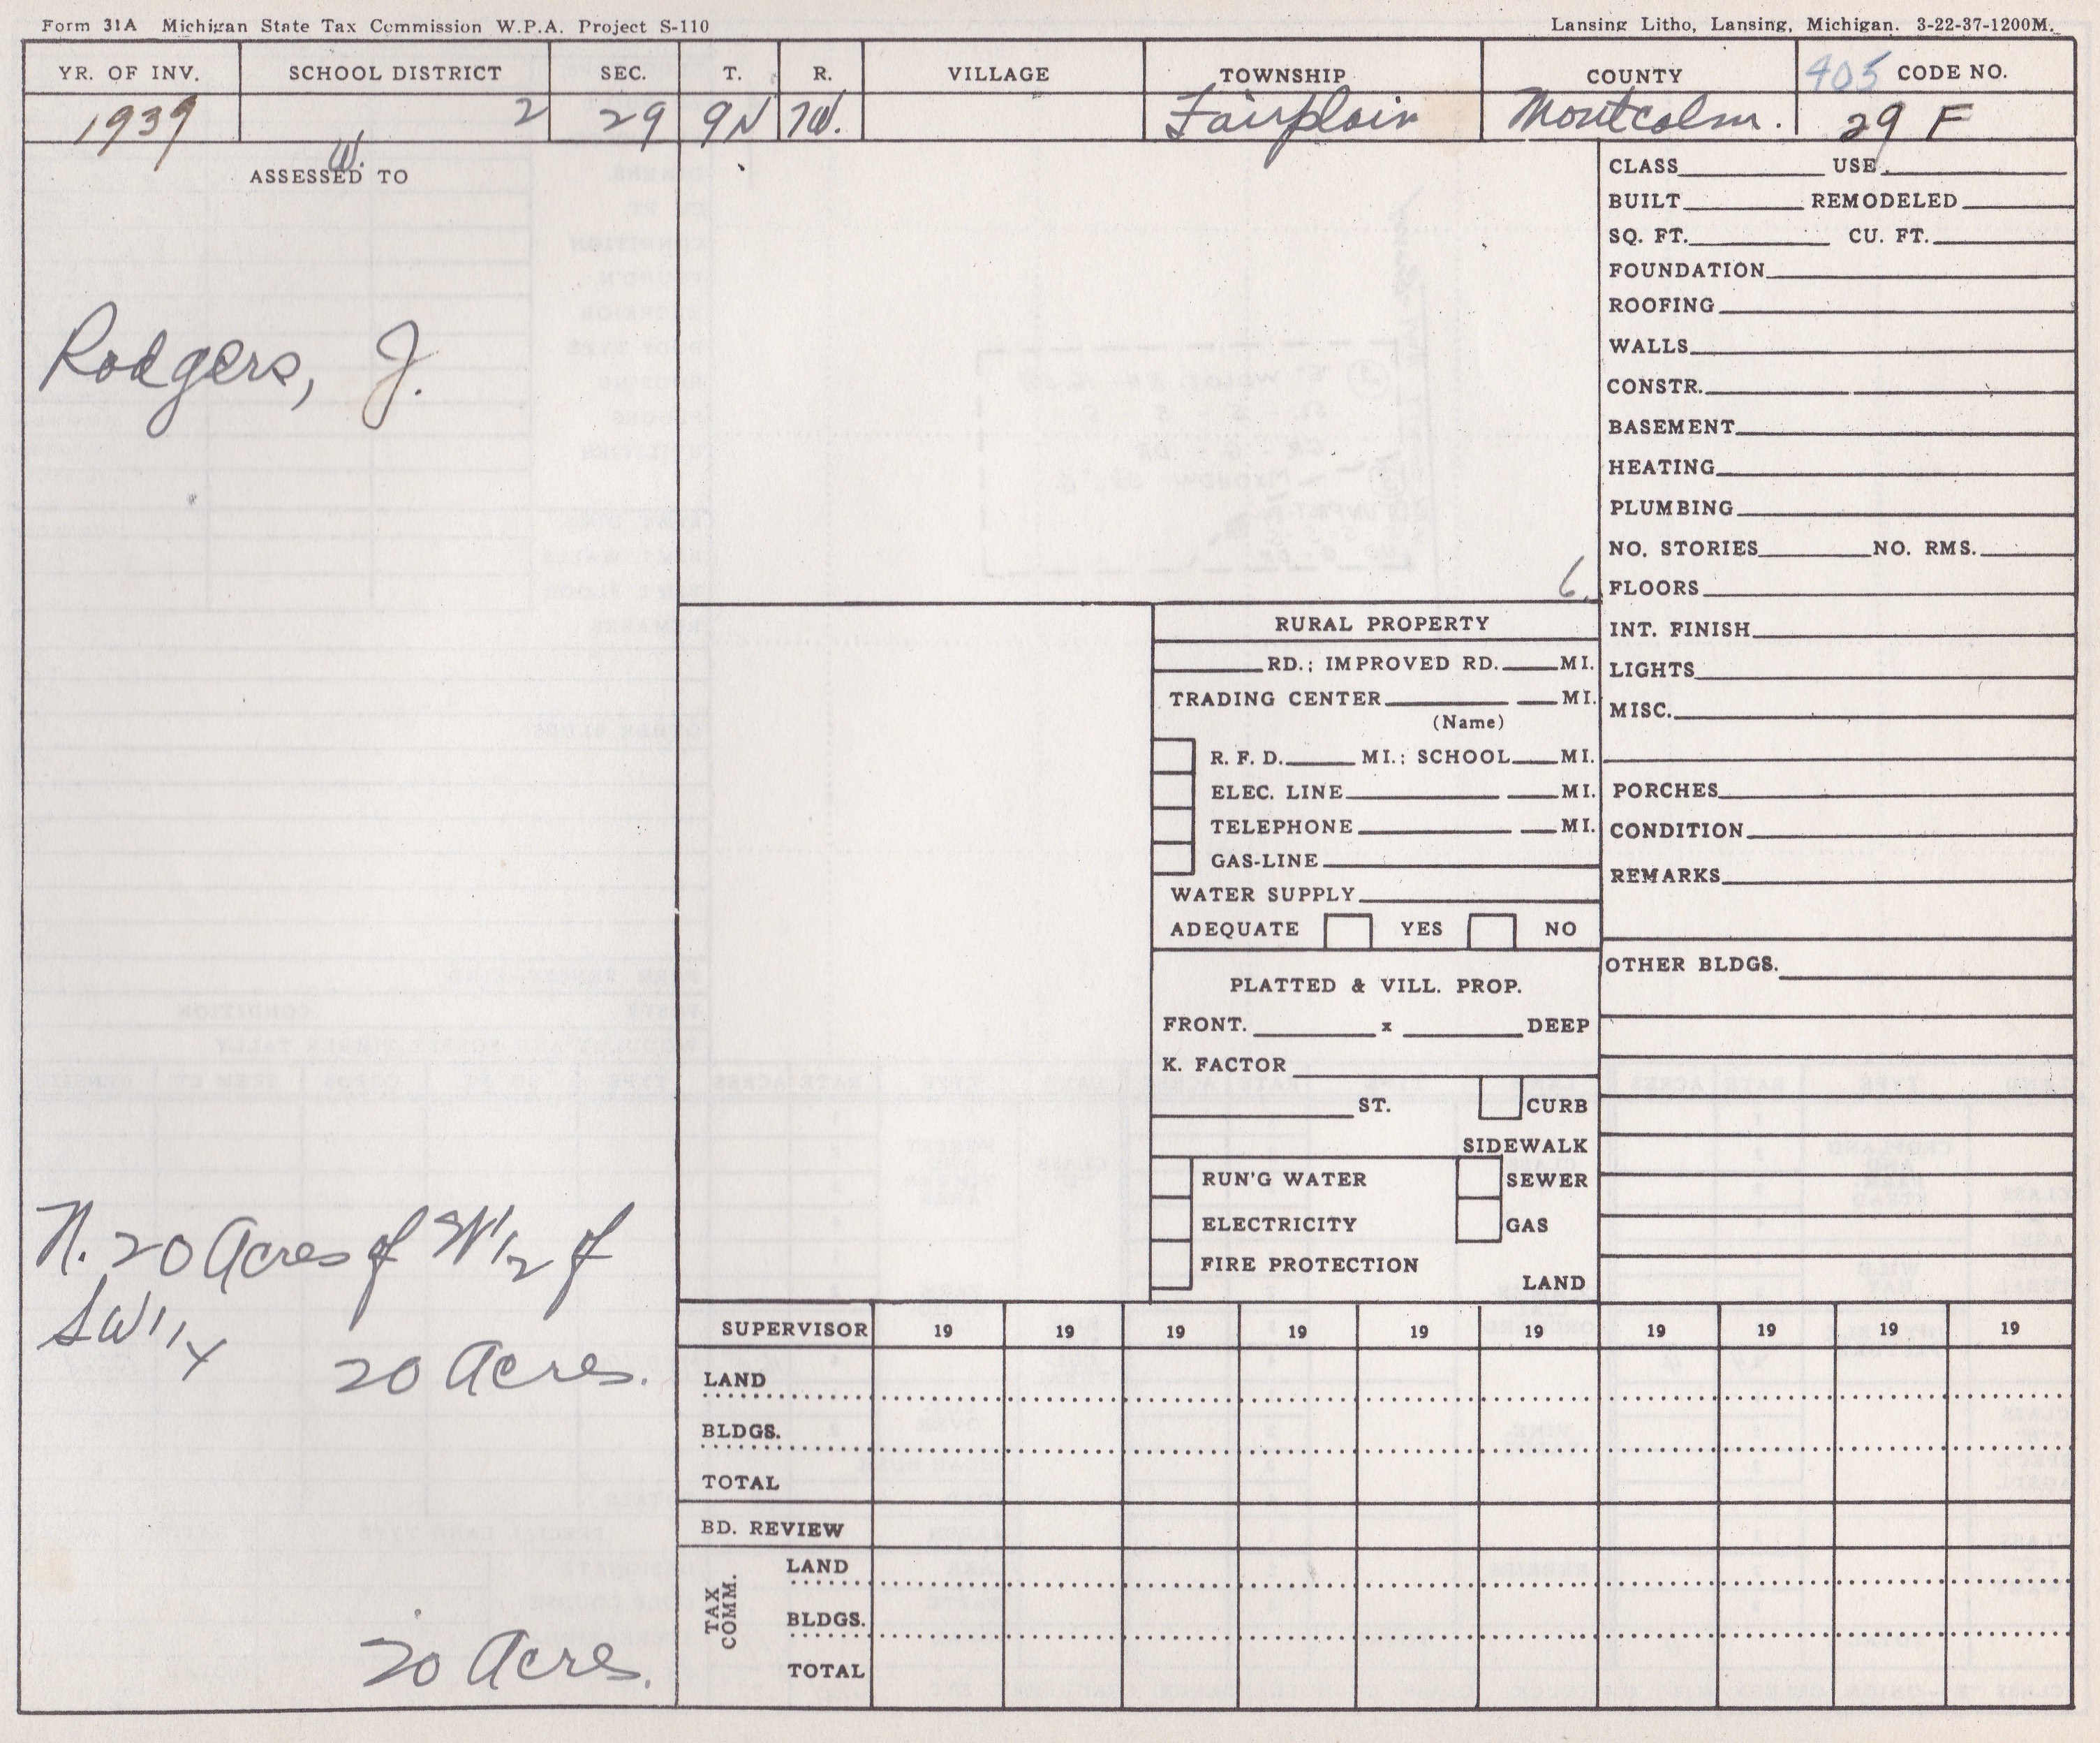 Form 31A Michigan State Tax Commission W.P.A. Project S-110
Lansing Litho, Lansing, Michigan. 3-22-37-1200M.
YR. OF INV. SCHOOL DISTRICT SEC. T. R. VILLAGE TOWNSHIP COUNTY 405 CODE NO.
1939 2 29 9N 7W. Fairplain Montcalm. 29 F
W.
ASSESSED TO
Rodgers, J.
N. 20 Acres of W 1/2 of
SW 1/4
20 Acres.
20 Acres.
6.
RURAL PROPERTY
RD.; IMPROVED RD. MI.
TRADING CENTER MI.
(Name)
R. F. D. MI.; SCHOOL MI.
ELEC. LINE MI.
TELEPHONE MI.
GAS-LINE
WATER SUPPLY
ADEQUATE YES NO
PLATTED & VILL. PROP.
FRONT. x DEEP
K. FACTOR
ST. CURB
SIDEWALK
RUN'G WATER SEWER
ELECTRICITY GAS
FIRE PROTECTION
LAND
CLASS USE
BUILT REMODELED
SQ. FT. CU. FT.
FOUNDATION
ROOFING
WALLS
CONSTR.
BASEMENT
HEATING
PLUMBING
NO. STORIES NO. RMS.
FLOORS
INT. FINISH
LIGHTS
MISC.
PORCHES
CONDITION
REMARKS
OTHER BLDGS.
SUPERVISOR 19 19 19 19 19 19 19 19 19 19
LAND
BLDGS.
TOTAL
BD. REVIEW
TAX COMM.
LAND
BLDGS.
TOTAL